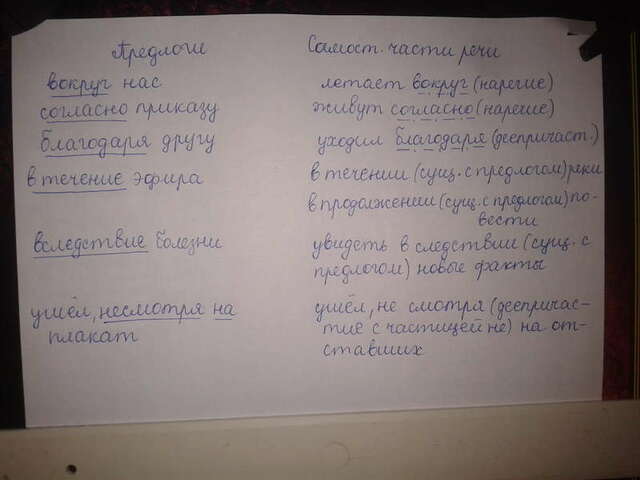 Предлоги
вокруг нас
согласно приказу
благодаря другу
в течение эфира
вследствие болезни
ушёл, несмотря на
плакат
Самост. части речи
летает вокруг (наречие)
живут согласно (наречие)
уходил благодаря (деепричаст.)
в течении (сущ. с предлогом) реки
в продолжении (сущ. с предлогом) по-
вести
увидеть в следствии (сущ. с
предлогом) новые факты
ушёл, не смотря (деепричас-
тие с частицей не) на от-
ставших